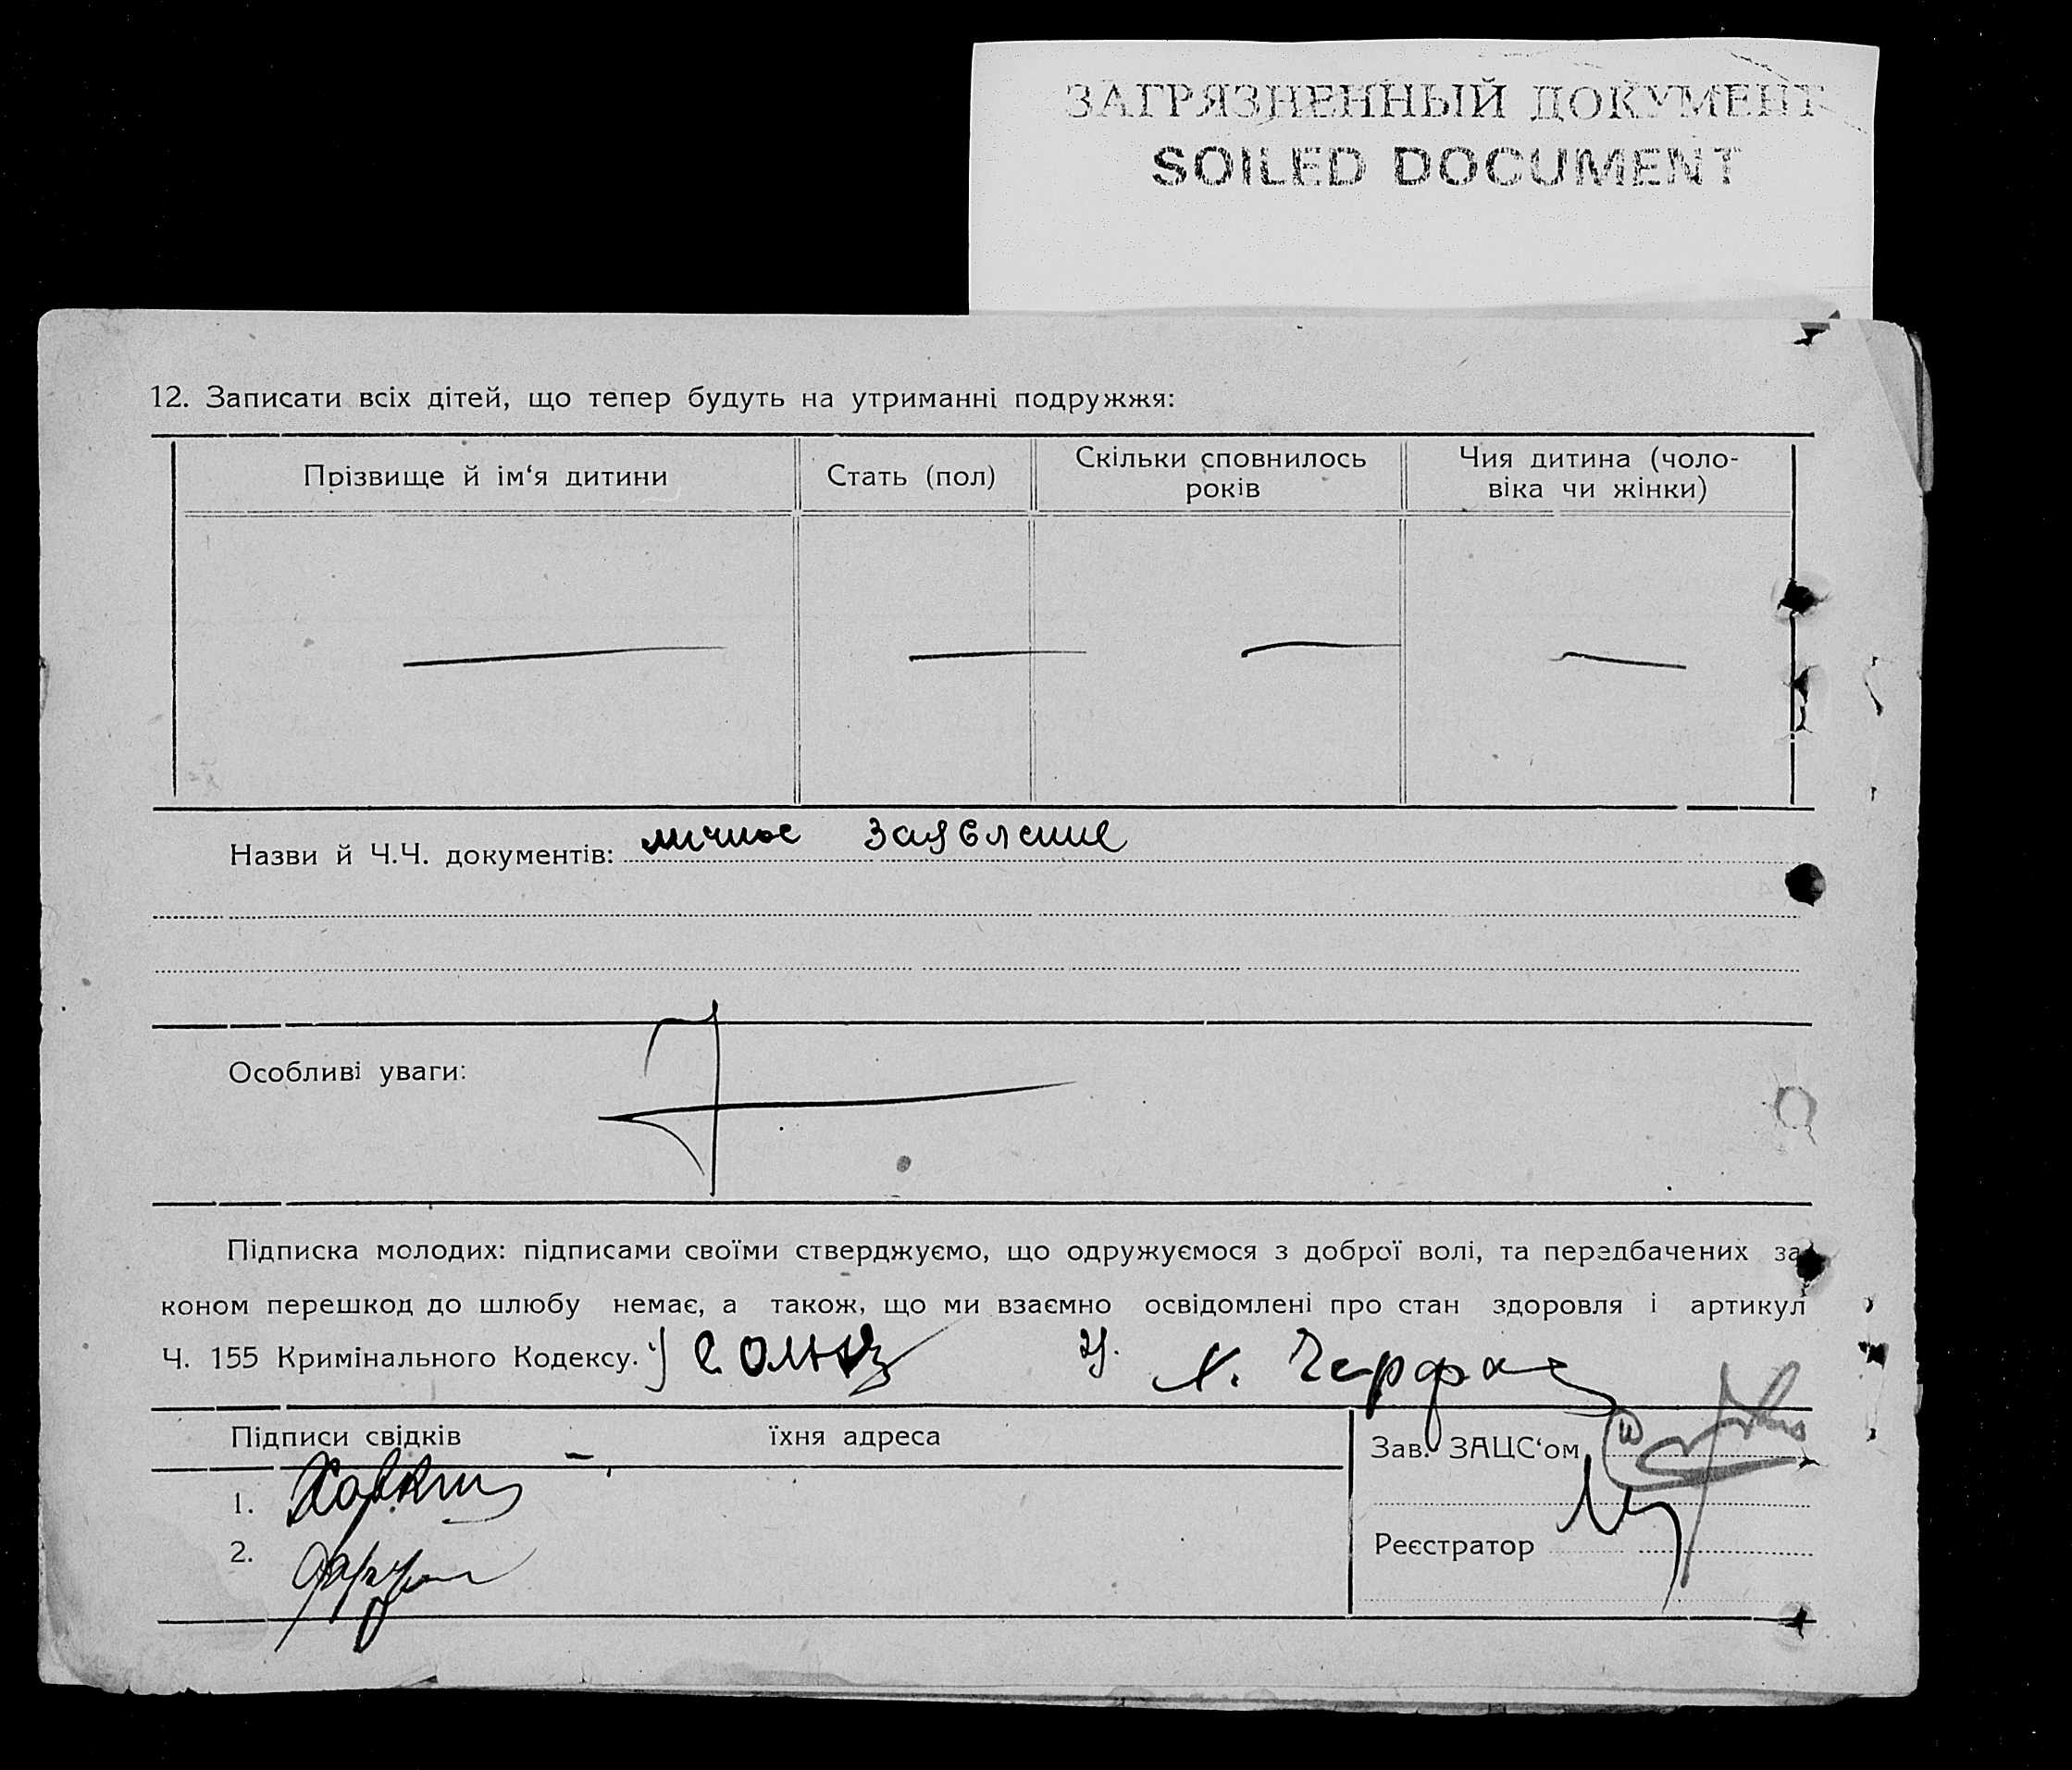 ЗАГРЯЗНЕННЫЙ ДОКУМЕНТ
SOILED DOCUMENT
12. Записати всіх дітей, що тепер будуть на утриманні подружжя:
Прізвище й ім‘я дитини
Стать (пол)
Скільки сповнилось
років
Чия дитина (чоло-
віка чи жінки)
Назви й Ч.Ч. документів: личное заявление
Особливі уваги:
Підписка молодих: підписами своїми стверджуємо, що одружуємося з доброї волі, та передбачених за
коном перешкод до шлюбу немає, а також, що ми взаємно освідомлені про стан здоровля і артикул
Ч. 155 Кримінального Кодексу.
Підписи свідків
їхня адреса
1.
2.
Зав. ЗАЦС‘ом
Реєстратор